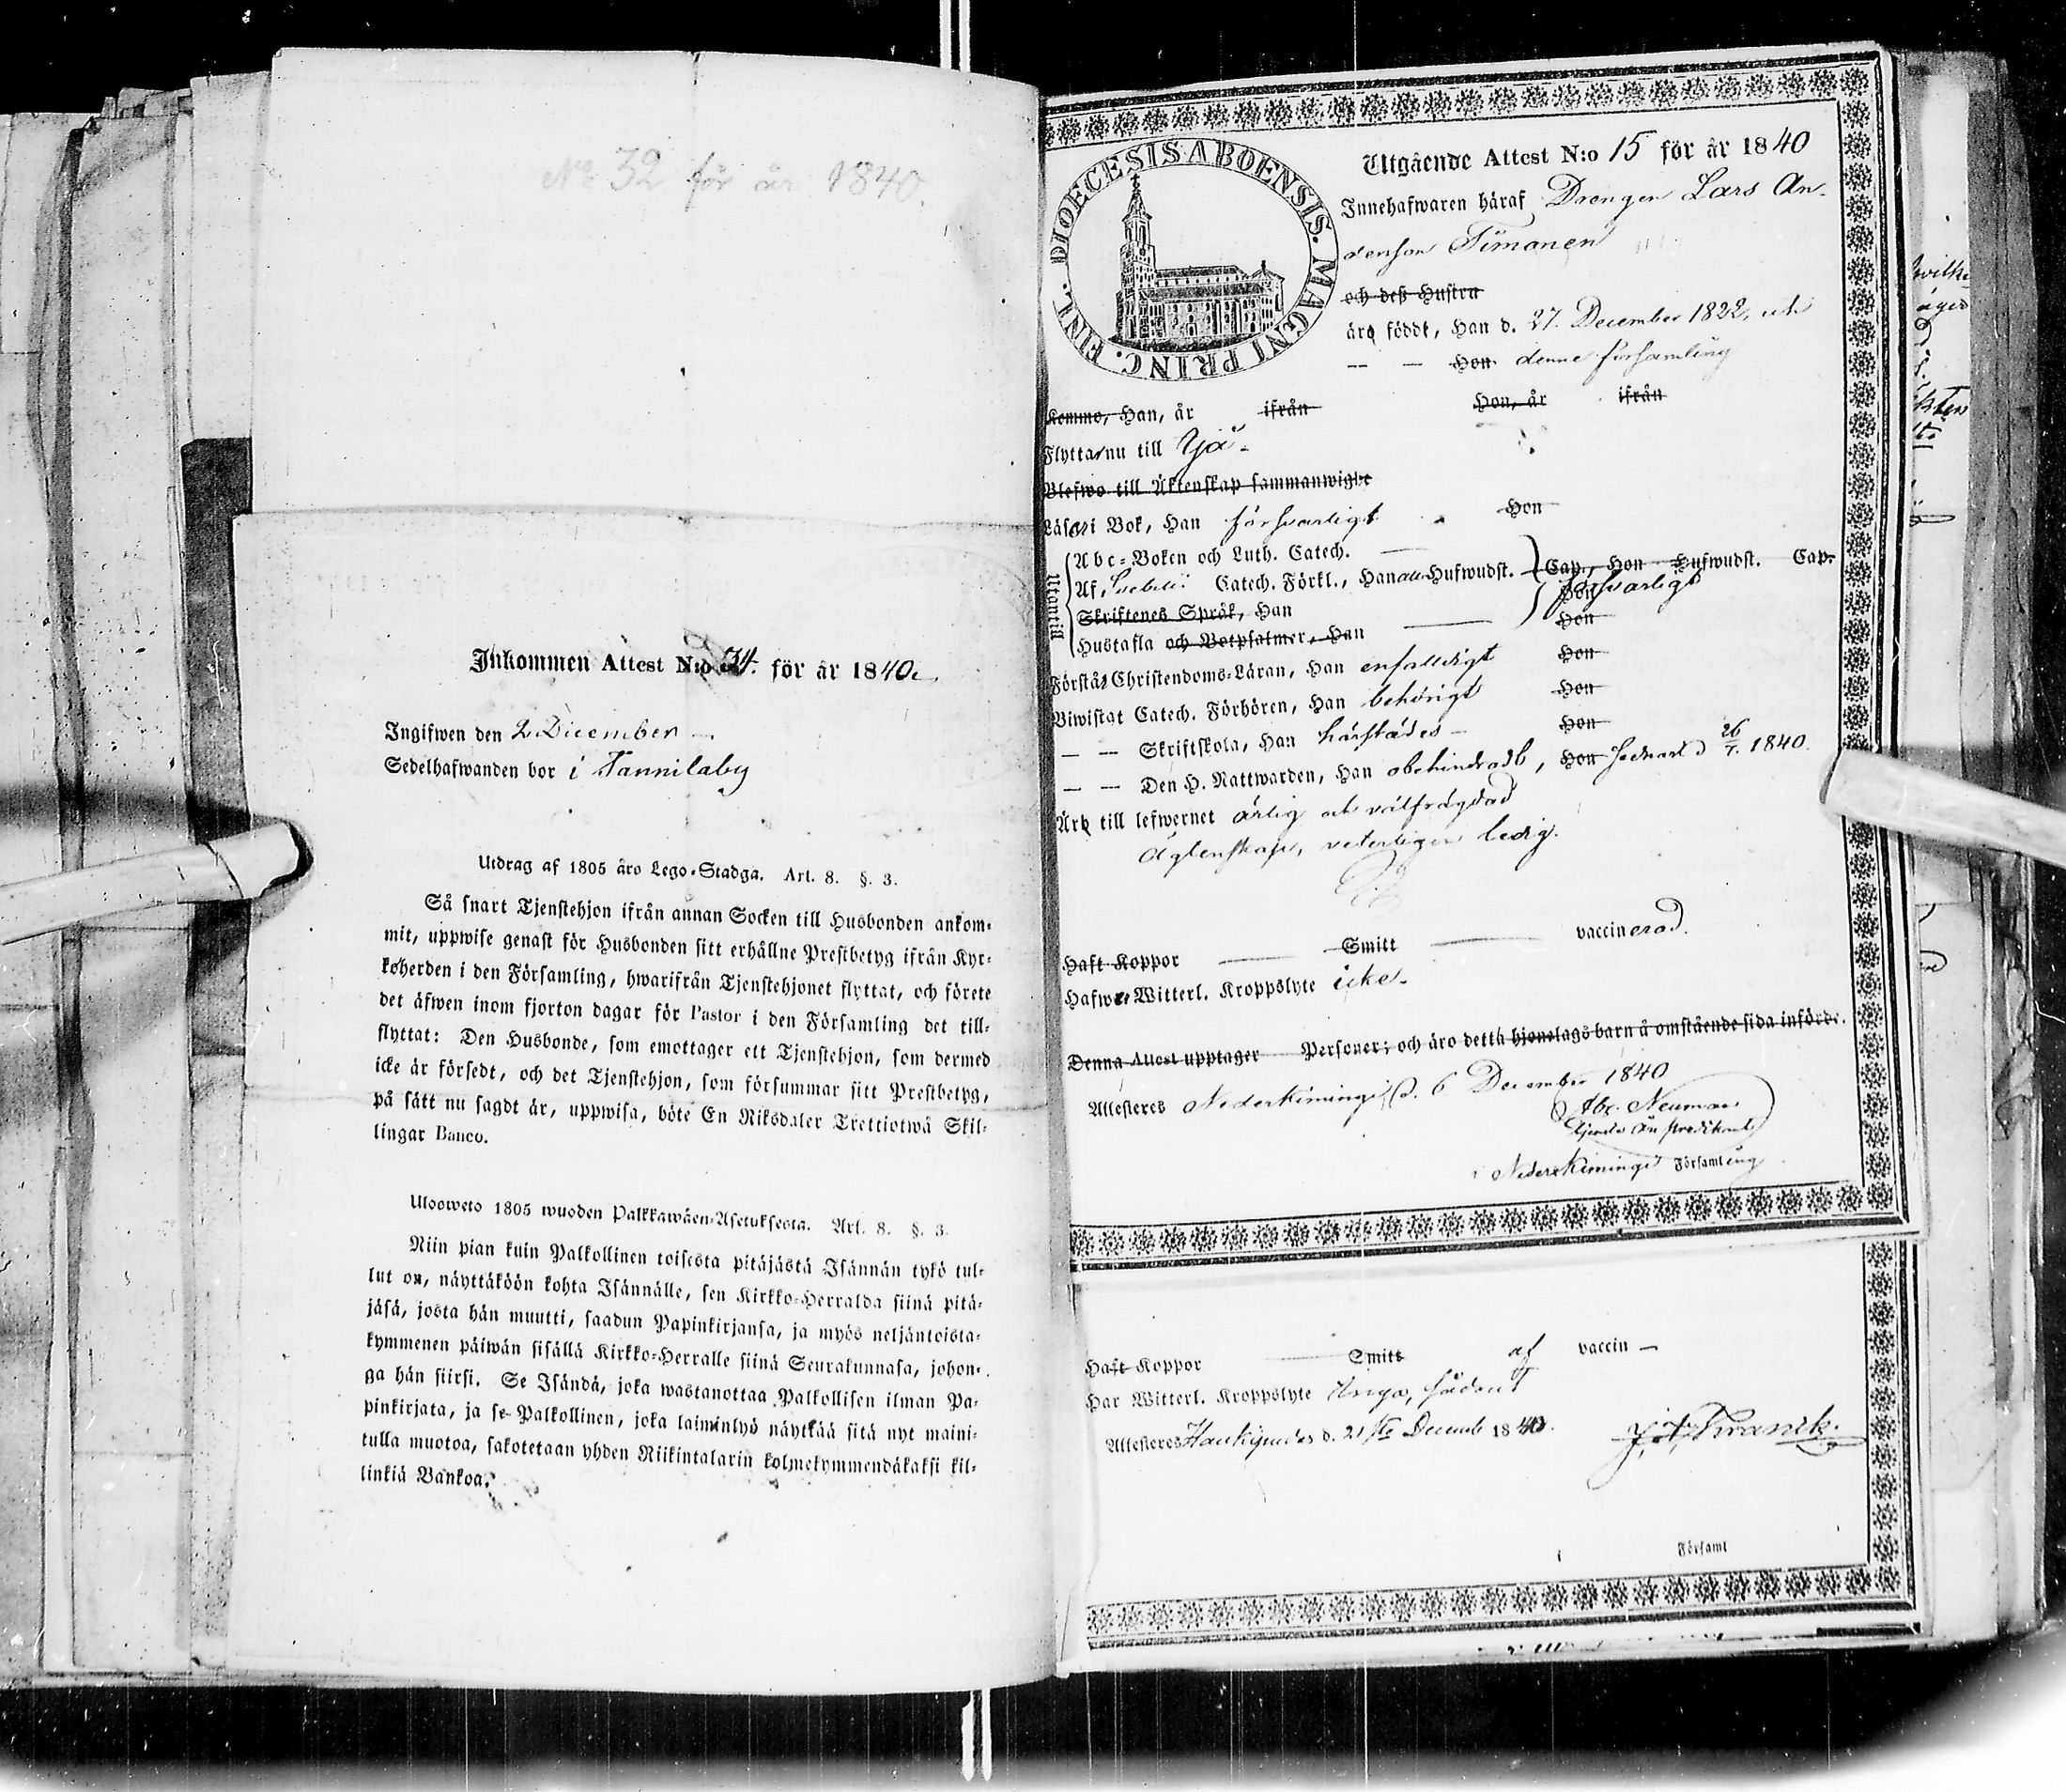 No 32 för år 1840.
Inkommen Attest N:o 34. för år 1840.
Ingifwen den 2 December
Sedelhafwanden bor i Tannilaby
Utdrag af 1805 års Lego-Stadga. Art. 8. §. 3.
Så snart Tjenstehjon ifrån annan Socken till Husbonden ankom-
mit, uppwise genast för Husbonden sitt erhållne Prestbetyg ifrån Kyr-
koherden i den Församling, hwarifrån Tjenstehjonet flyttat, och förete
det äfwen inom fjorton dagar för Pastor i den Församling det till-
flyttat: Den Husbonde, som emottager ett Tjenstehjon, som dermed
icke är försedt, och det Tjenstehjon, som försummar sitt Prestbetyg,
på sätt nu sagdt är, uppwisa, böte En Riksdaler Trettiotwå Skil-
lingar Banco.
Ulosweto 1805 wuoden Palkkawäen-Asetuksesta. Art. 8. §. 3.
Niin pian kuin Palkollinen toisesta pitäjästä Isännän tykö tul-
lut on, näyttäköön kohta Isännälle, sen Kirkko-Herralda siinä pitä-
jäsä, josta hän muutti, saadun Papinkirjansa, ja myös neljäntoista-
kymmenen päiwän sisällä Kirkko-Herralle siinä Seurakunnasa, johon-
ga hän siirsi. Se Isändä, joka wastanottaa Palkollisen ilman Pa-
pinkirjata, ja se Palkollinen, joka laiminlyö näytkää sitä nyt maini-
tulla muotoa, sakotetaan yhden Riikintalarin kolmekymmendäkaksi kil-
linkiä Bankoa.
DIOECESIS ABOENSIS. MAGNI PRINC. FINL.
Utgående Attest N:o 15 för år 1840
Innehafwaren häraf Drengen Lars An-
dersson Timonen
och deß Hustru
äro född, Han d. 27. December 1822, uti
— — Hon denna församling
Kommo, Han, år ifrån Hon, år ifrån
Flyttar nu till Ijä-
Blefwo till Äktenskap sammanwigde
Läsa i Bok, Han försvarligt Hon
Utantill
Abc-Boken och Luth. Catech.
Af Svebelii Catech. Förkl., Han alla Hufwudst. Cap., Hon Hufwudst. Cap.
Skriftenes Språk, Han försvarligt Hon
Hustafla och Botpsalmer, Han Hon
Förstår Christendoms-Läran, Han enfalldigt Hon
Biwistat Catech. Förhören, Han behörigt Hon
— — Skriftskola, Han härstädes Hon
— — Den H. Nattwarden, Han obehindradt, Hon sednast d 26/7. 1840.
Äro till lefwernet ärlig och välfrägdad
Ägtenskap, veterligen ledig.
Haft Koppor Smitt vaccinerad.
Hafwer Witterl. Kroppslyte icke.
Denna Attest upptager Personer; och äro detta hjonelags barn å omstående sida införde.
Attesteres Nederkimingi d. 6 December 1840
Abr. Neuman
i Nederkimingi Församling
Haft Koppor Smitt af vaccin —
Har Witterl. Kroppslyte Inga, sådant
Attesteres Haukipudas d. 21ste Decemb 1840.
J. Franck.
i Församl